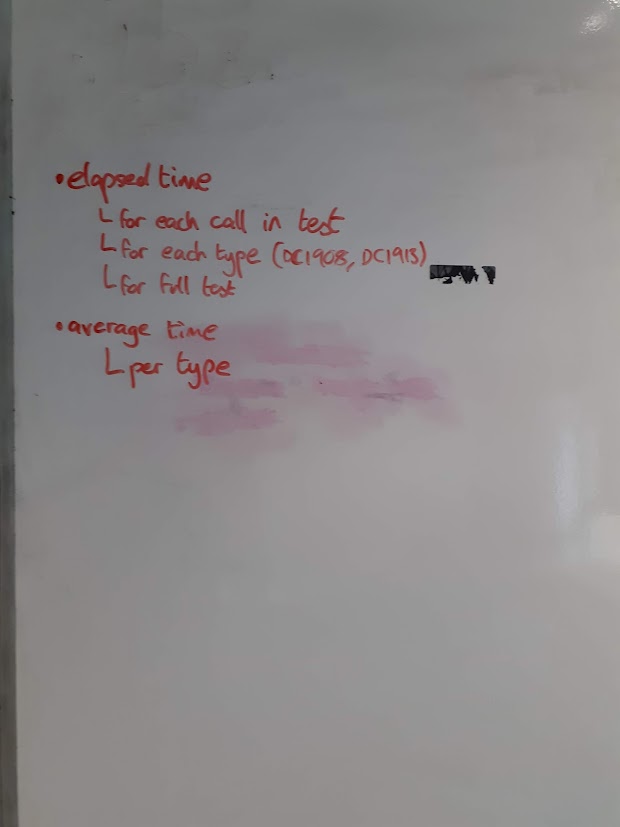 • elapsed time
└ for each call in test
└ for each type (DC1908, DC1913)
└ for full test
• average time
└ per type